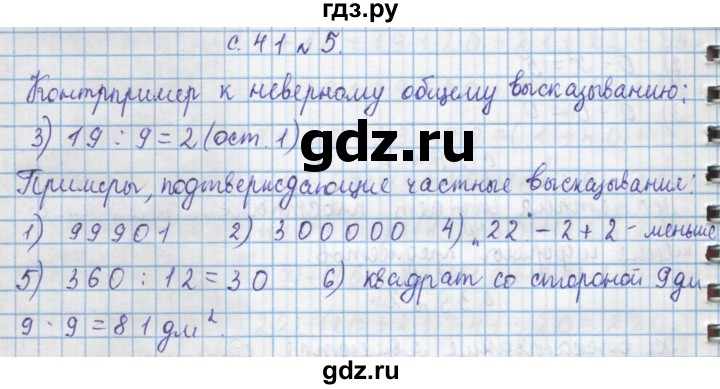 гдз.ру
с. 41 № 5.
Контрпример к неверному общему высказыванию:
3) 19 : 9 = 2 (ост. 1)
gdz.ru
Примеры, подтверждающие частные высказывания:
1) 99901 2) 300000 4) „22" - 2 + 2 - меньше
5) 360 : 12 = 30 6) квадрат со стороной 9дм
9 · 9 = 81 дм².
gdz.ru